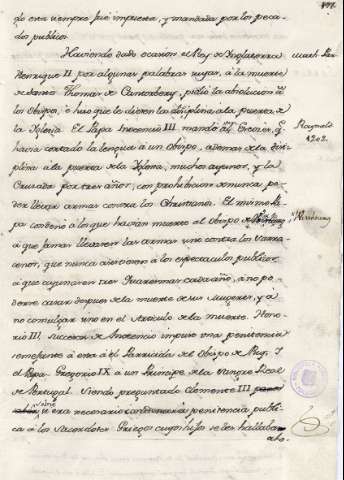 do era siempre fué impuesta, y mandada por los peca-
dos publicos.
Haviendo dado ocasion el Rey de Inglaterra
Henrique II por algunas palabras suyas, á la muerte
de Santo Thomas de Cantorbery, pidió la absolucion á
los Obispos, é hizo que le diesen la disciplina á la puerta de
la Yglesia. El Papa Inocencio III mandó á un q.e
havia cortado la lengua á un Obispo, ademas de la disci-
plina á la puerta de la Yglesia, muchos ayunos, y la
Cruzada por tres años, con prohibicion de nunca po-
der llevar armas contra los Christianos. El mismo Pa-
pa condenó á los que havian muerto al Obispo de
á que jamas llevasen las armas sino contra los Sarra-
cenos, que nunca asistiesen á los espectaculos publicos
á que ayunasen tres Quaresmas cada año, á no po-
derse casar despues de la muerte de sus Mugeres, y á
no comulgar sino en el Articulo de la muerte. Hono-
rio III, succesor de Inocencio impuso una penitencia
semejante á esta á el Parricida del Obispo de Puy. Y
el Papa Gregorio IX á un Principe de la Sangre Real
de Portugal. Siendo preguntado Clemente III
si era necesario penitencia publi-
ca á los Sacerdotes Griegos cuyos hijos se les hallaban
Raynald
1202.